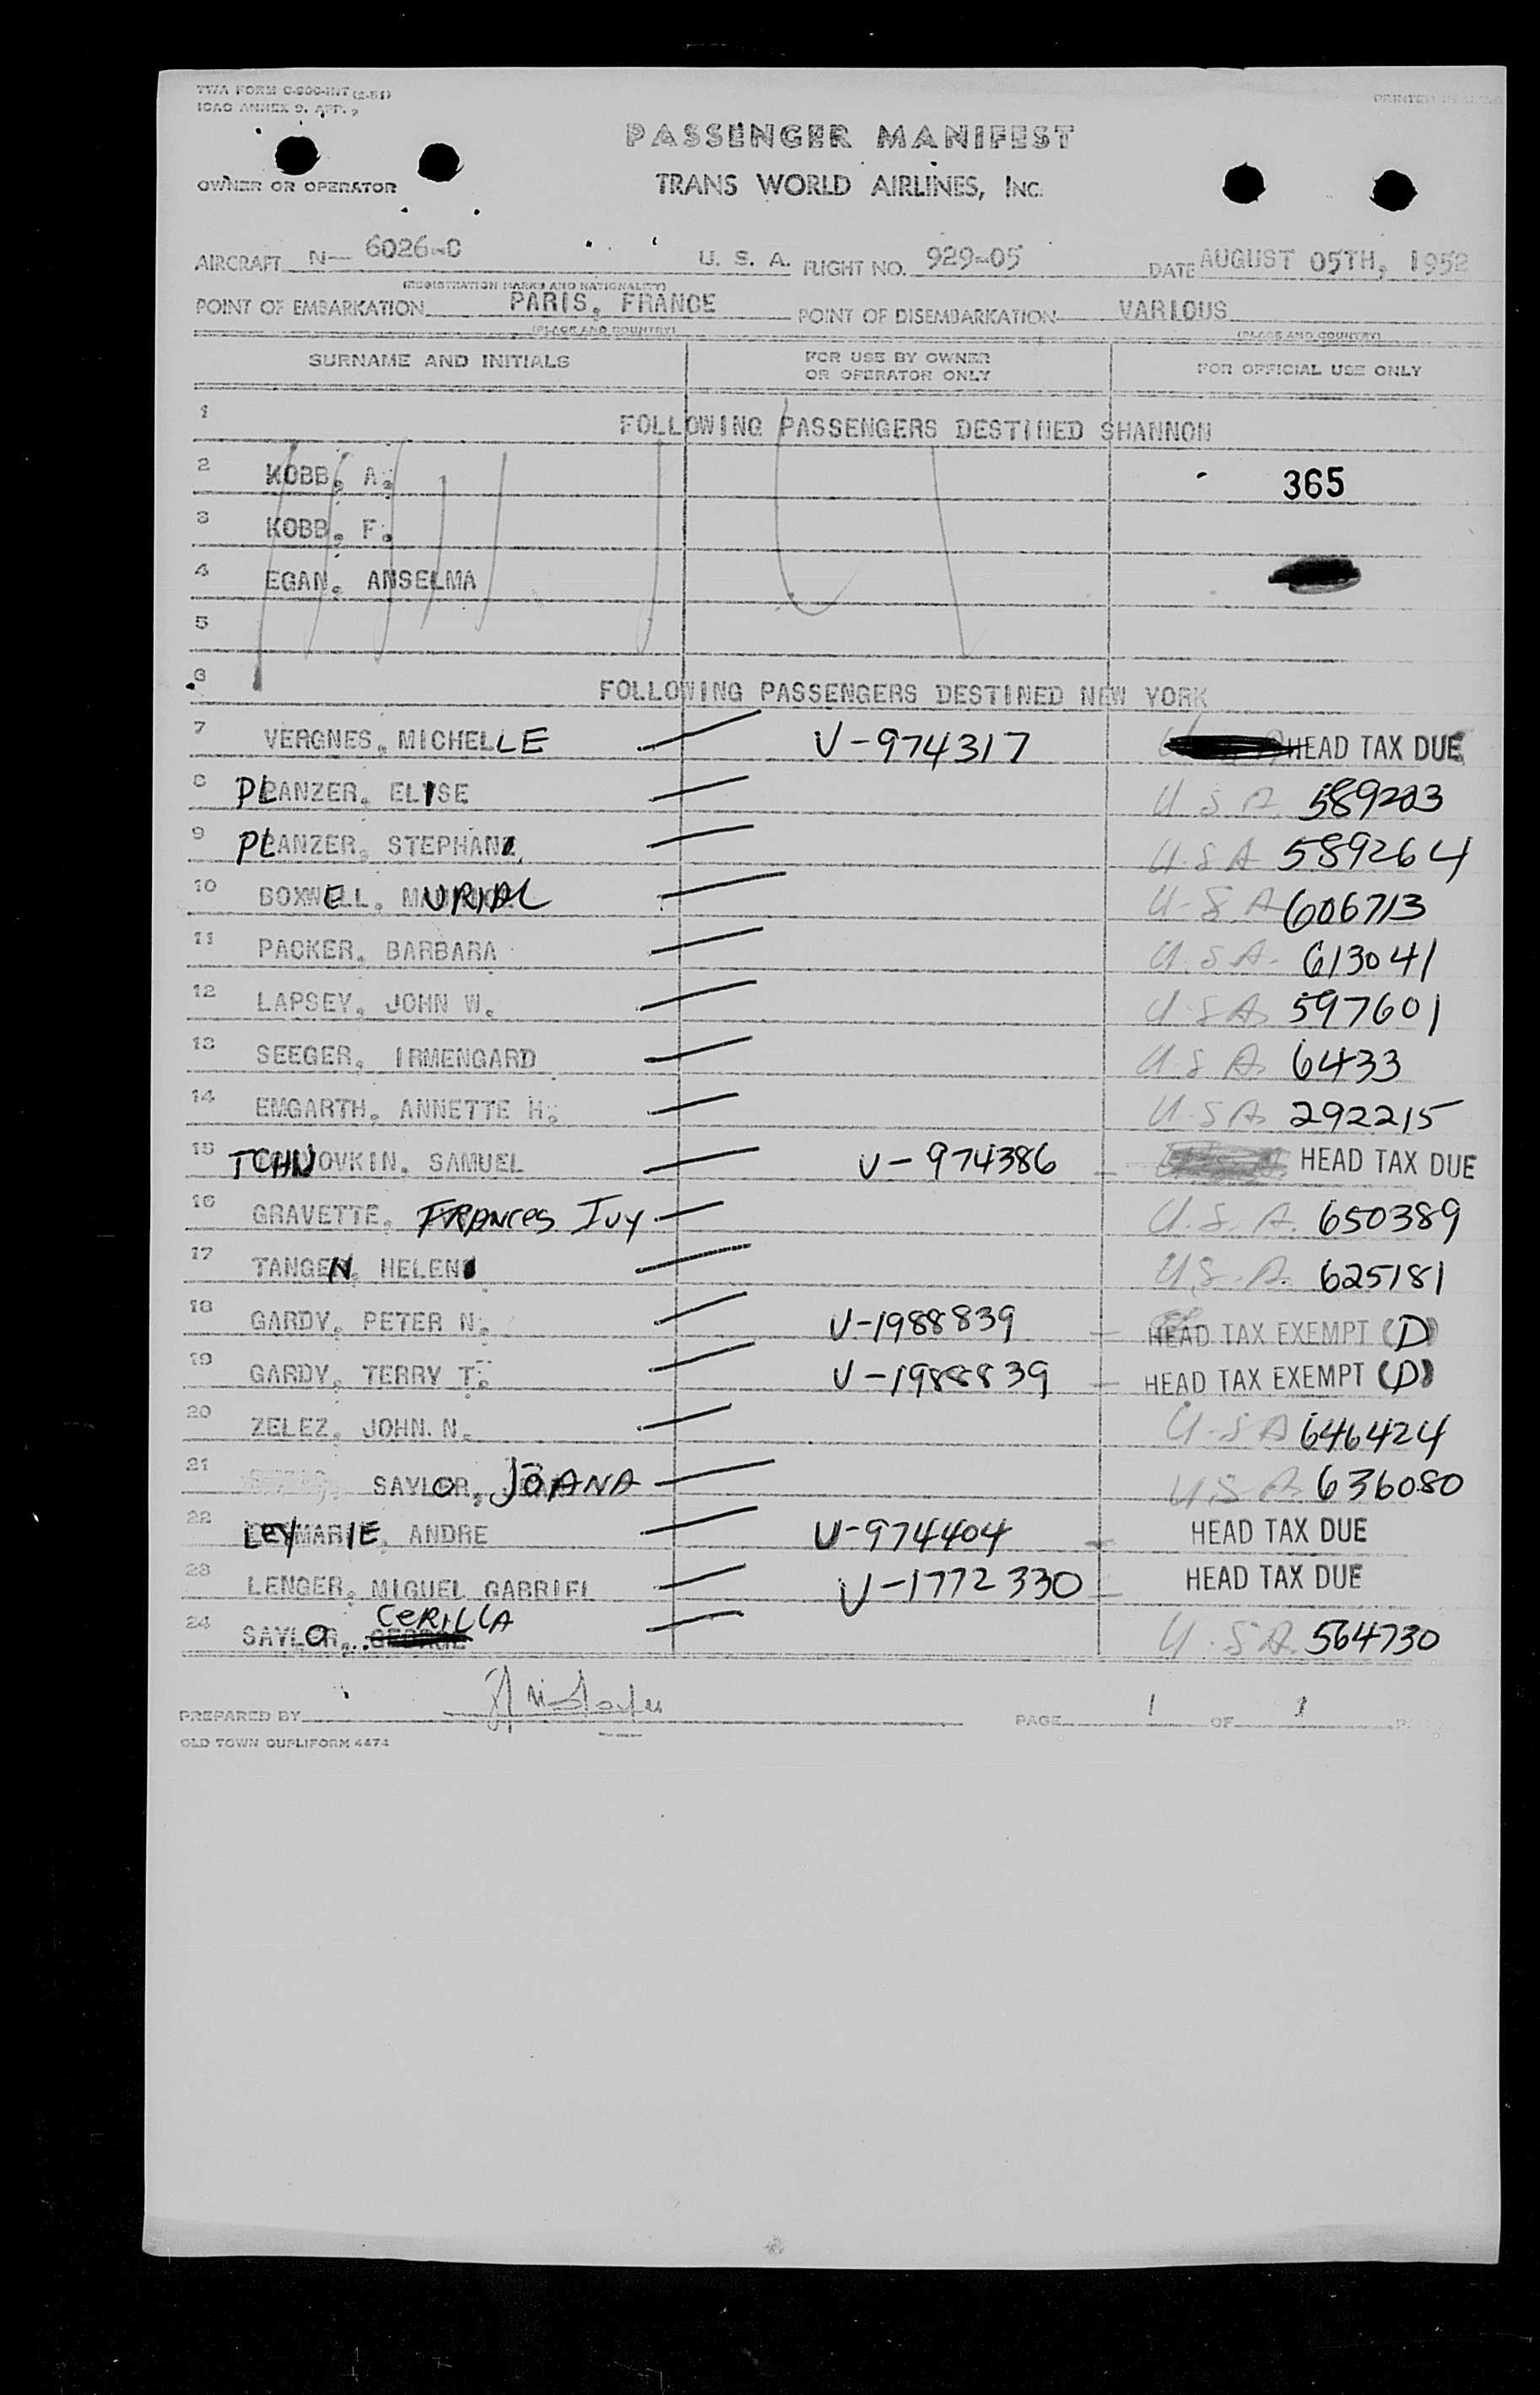 TWA FORM C-200-INT (2-51)
ICAO ANNEX 9. APP. 2
PRINTED IN U.S.A.
PASSENGER MANIFEST
OWNER OR OPERATOR TRANS WORLD AIRLINES, INC.
AIRCRAFT N- 6026-C U. S. A. FLIGHT NO. 929-05 DATE AUGUST 05TH, 1952
(REGISTRATION MARKS AND NATIONALITY)
POINT OF EMBARKATION PARIS, FRANCE POINT OF DISEMBARKATION VARIOUS
(PLACE AND COUNTRY) (PLACE AND COUNTRY)
SURNAME AND INITIALS FOR USE BY OWNER OR OPERATOR ONLY FOR OFFICIAL USE ONLY
1 FOLLOWING PASSENGERS DESTINED SHANNON
2 KOBB, A. 365
3 KOBB, F.
4 EGAN, ANSELMA
5
6 FOLLOWING PASSENGERS DESTINED NEW YORK
7 VERGNES, MICHELLE V-974317 HEAD TAX DUE
8 PLANZER, ELISE U.S.A. 589203
9 PLANZER, STEPHAN U.S.A 589264
10 BOXWELL, MURIAL U-S A 606713
11 PACKER, BARBARA U.S.A. 613041
12 LAPSEY, JOHN W. U.S.A. 597601
13 SEEGER, IRMENGARD U.S.A. 6433
14 EMGARTH, ANNETTE H. U.S.A. 292215
15 TCHNOVKIN, SAMUEL V-974386 HEAD TAX DUE
16 GRAVETTE, FRANCES Ivy U.S.A. 650389
17 TANGEN, HELEN U.S.A. 625181
18 GARDY, PETER N. V-1988839 HEAD TAX EXEMPT (D)
19 GARDY, TERRY T. V-1988839 HEAD TAX EXEMPT (D)
20 ZELEZ, JOHN. N. U.S A 646424
21 SAYLOR, JOANA U.S A. 636080
22 LEYMARIE, ANDRE V-974404 HEAD TAX DUE
23 LENGER, MIGUEL GABRIEL V-1772330 HEAD TAX DUE
24 SAYLOR, CERILLA U.S.A. 564730
PREPARED BY PAGE 1 OF 1
OLD TOWN DUPLIFORM 4474